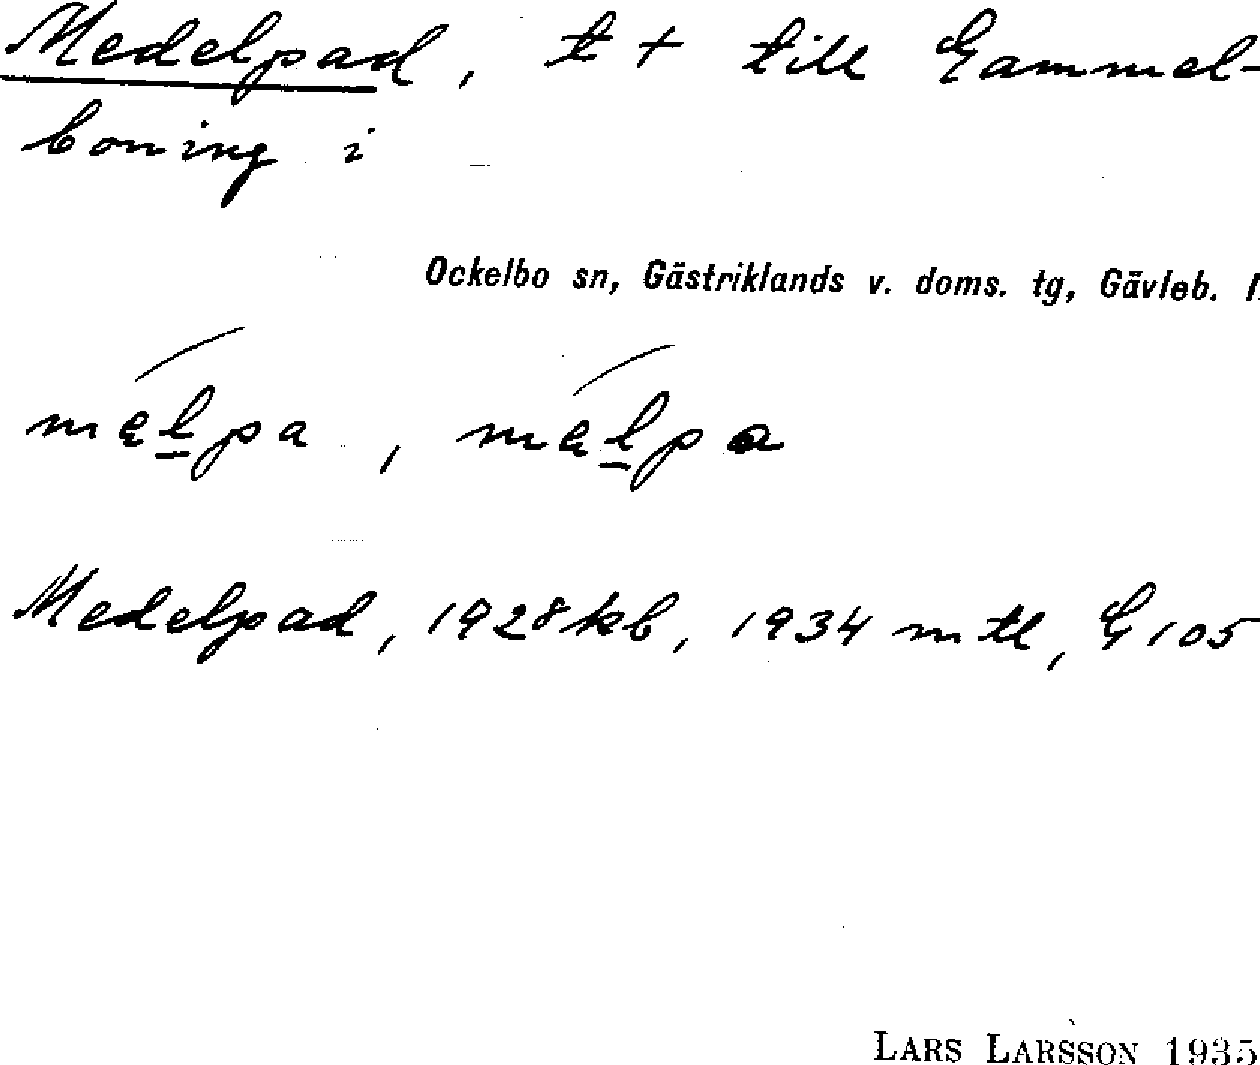 Medelpad, t + till Gammel-
boning i
Ockelbo sn, Gästriklands v. doms. tg, Gävleb. l.
Medelpad, 1928 kb, 1934 mtl, G 105
LARS LARSSON 1935